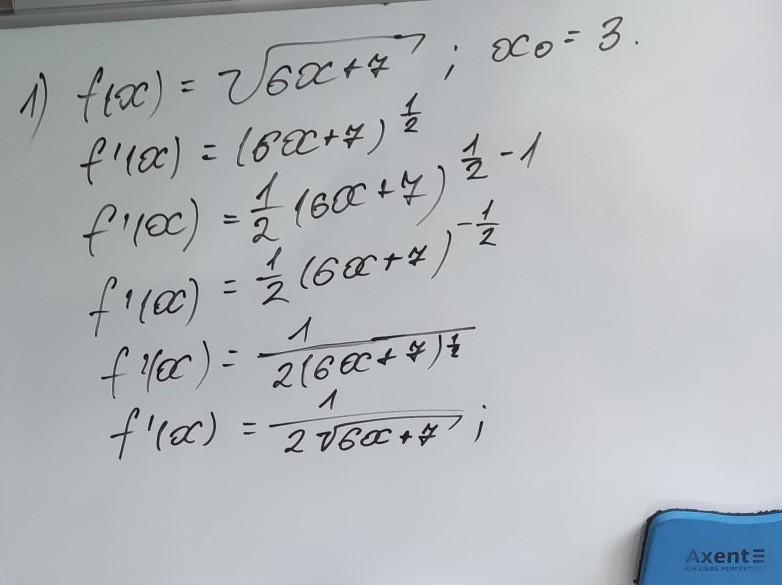 1) f(x) = √6x+7 ; x₀ = 3.
f'(x) = (6x+7)^½
f'(x) = ½ (6x+7)^½ - 1
f'(x) = ½ (6x+7)^-½
f'(x) = 1/2(6x+7)^½
f'(x) = 1/2√6x+7 ;
Axent
ICH LIEBE PERFEKT